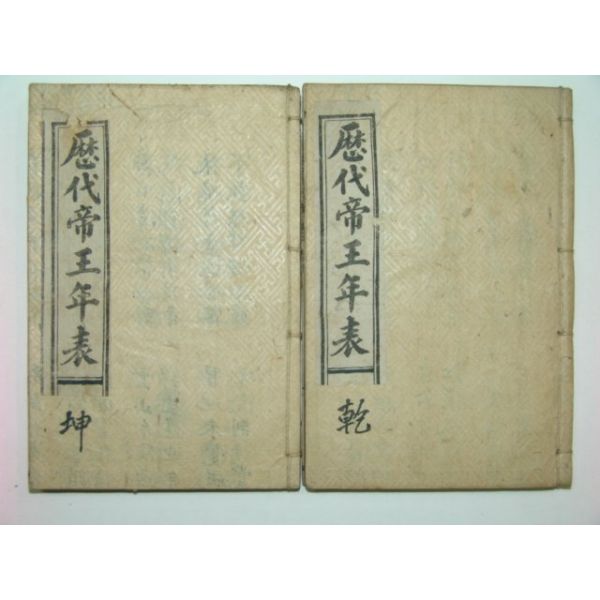 歷代帝王年表
乾
歷代帝王年表
坤